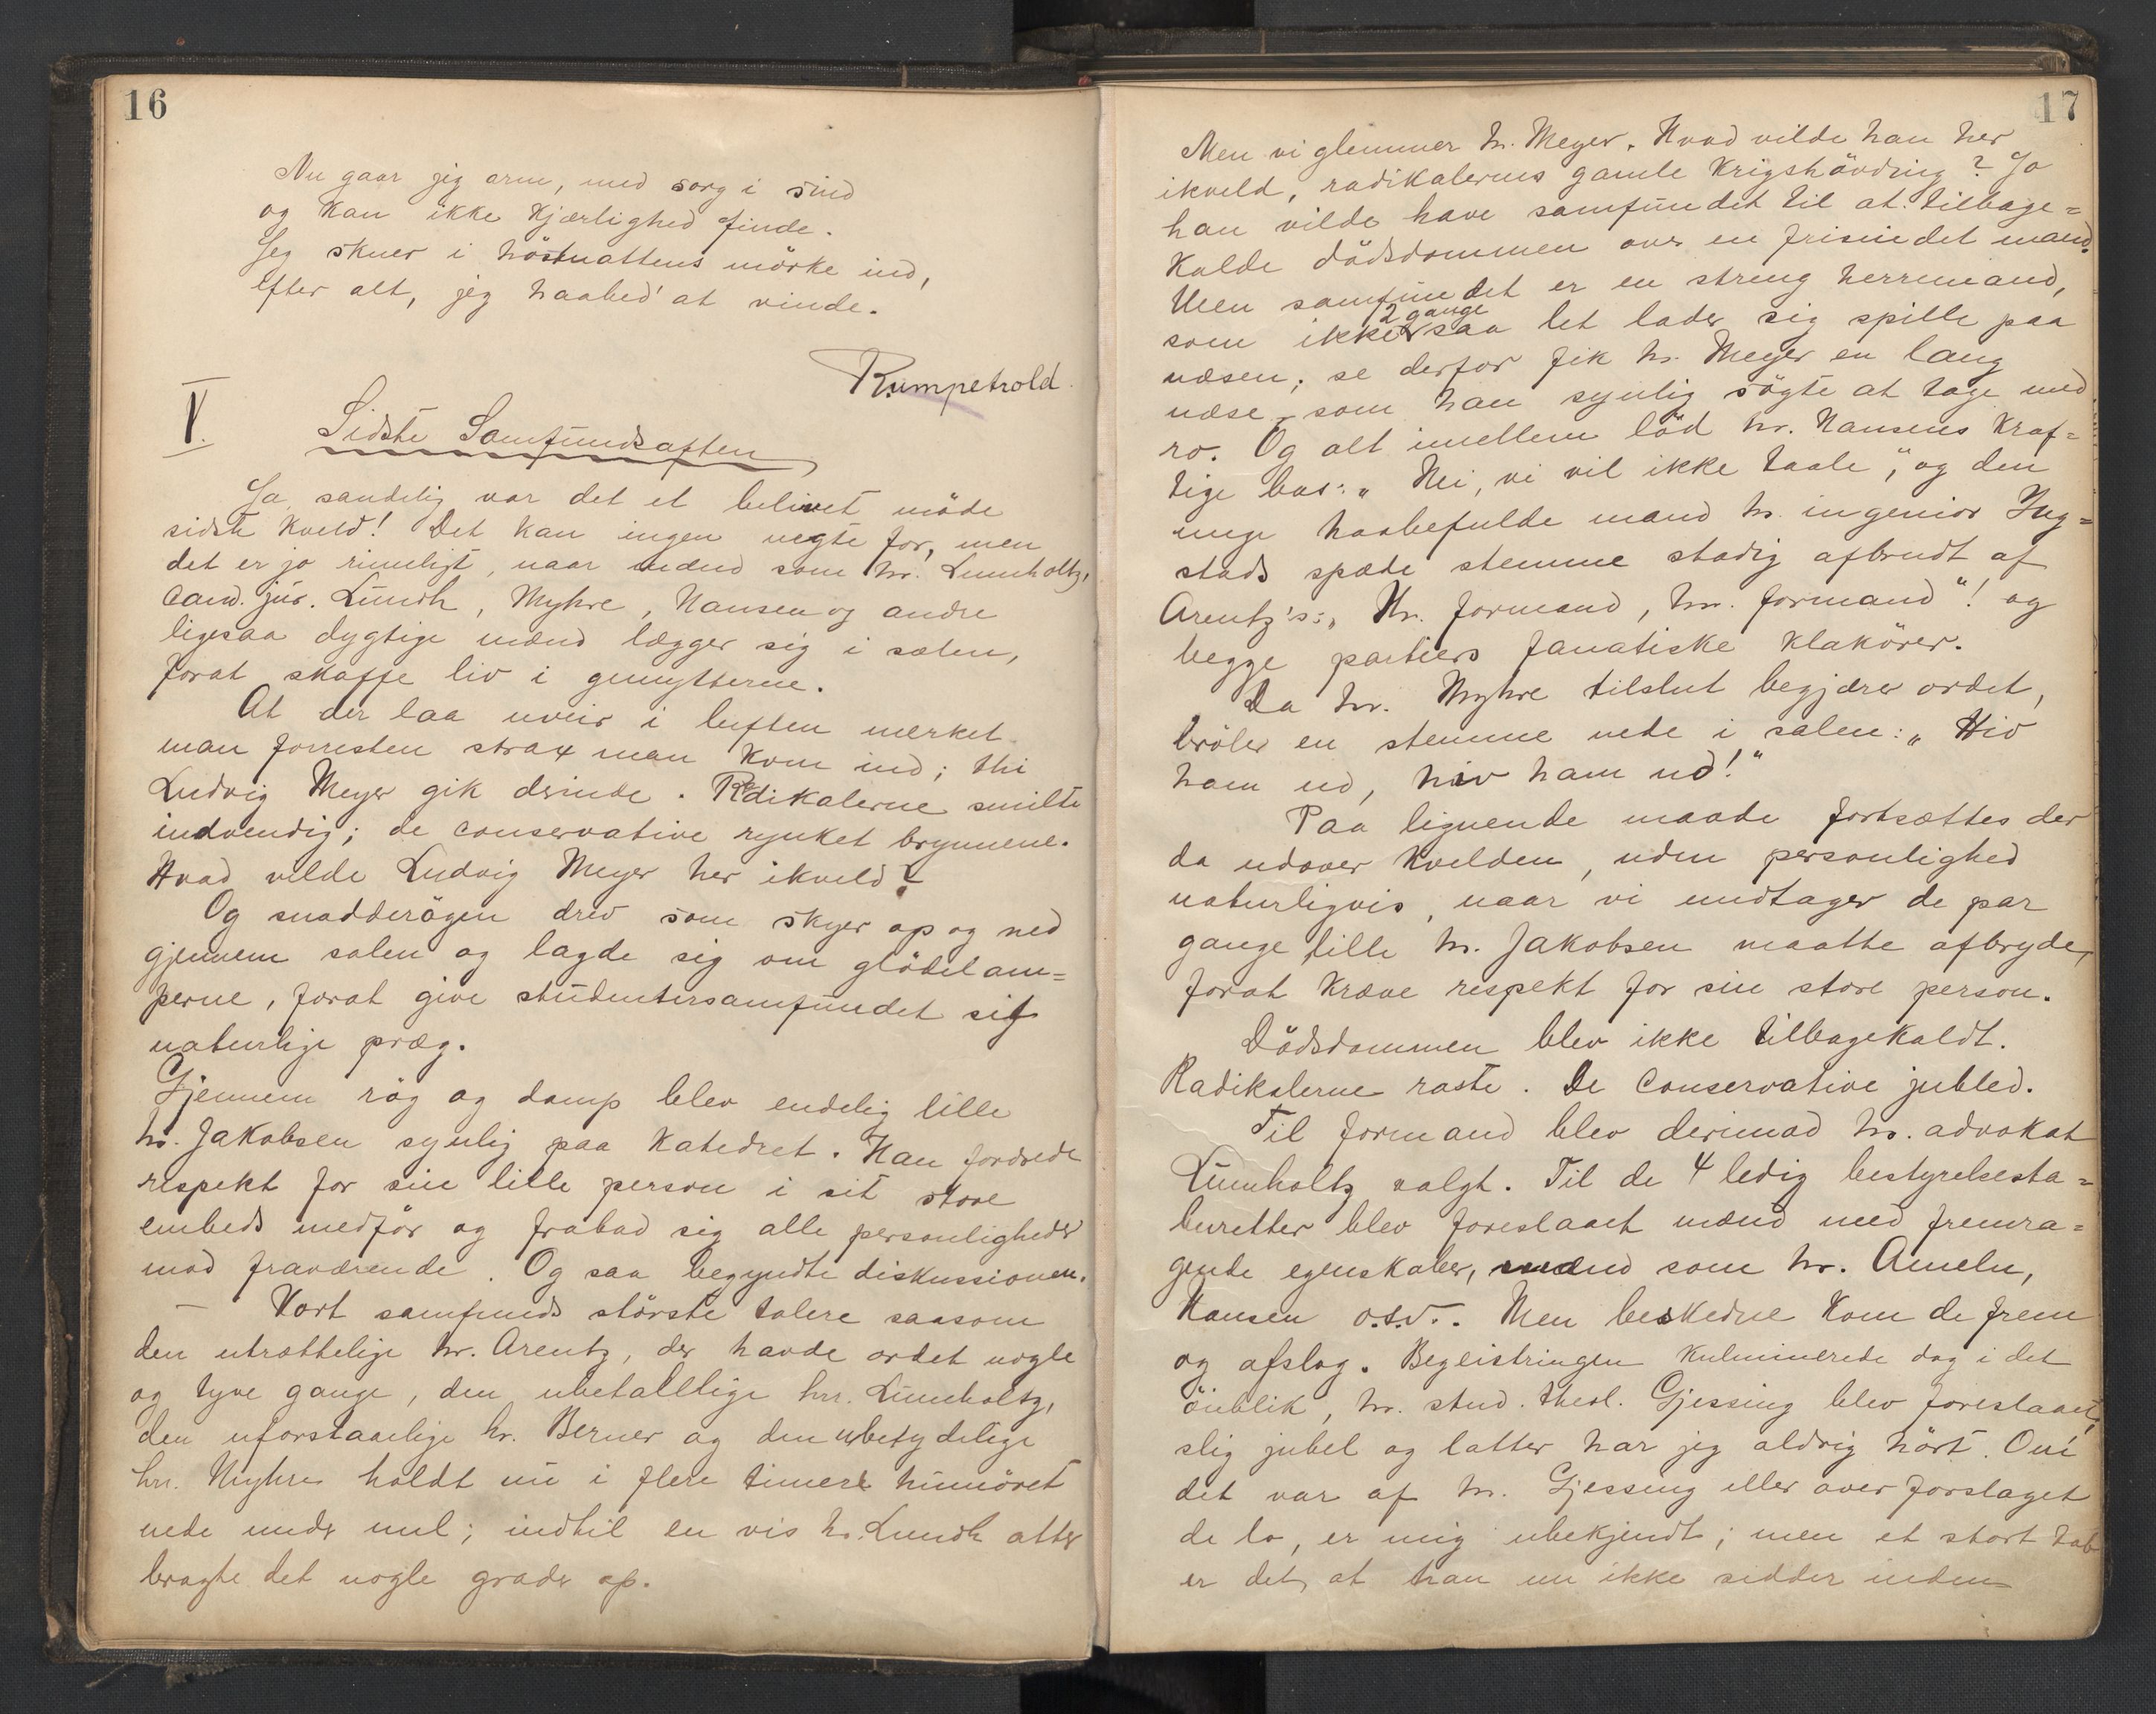 16
Nu gaar jeg arm, med sorg i sind
og kan ikke kjærlighed finde.
Jeg skuer i höstnattens mörke ind,
efter alt, jeg haabed' at vinde.
Rumpetrold.
V.
Sidste Samfundsaften
Ja sandelig var det et belivet möde
sidste kveld! Det kan ingen negte for, men
det er jo rimeligt, naar mænd som hr. Lumholtz,
cand. jur. Lundh, Myhre, Hansen og andre
ligesaa dygtige mænd lægger sig i sælen,
forat skaffe liv i gemytterne.
At der laa uveir i luften mærket
man forresten strax man kom ind; thi
Ludvig Meyer gik derinde. Radikalerne smilte
indvendig; de conservative rynket brynene.
Hvad vilde Ludvig Meyer her ikveld?
Og snadderögen drev som skyer op og ned
gjennem salen og lagde sig om glödelam=
perne, forat give studentersamfundet sit
naturlige præg.
Gjennem røg og damp blev endelig lille
hr. Jakobsen synlig paa katedret. Han fordrede
respekt for sin lille person i sit store
embeds medför og frabad sig alle personligheder
mod fraværende. Og saa begyndte diskussionen.
— Vort samfunds störste talere saasom
den utrættelige hr. Arentz, der havde ordet nogle
og tyve gange, den ubetallige hr. Lumholtz,
den uforstaaelige hr. Berner og den ubetydelige
hr. Myhre holdt nu i flere timer humöret
nede under nul; indtil en vis hr. Lundh atter
bragte det nogle grader op.
17
Men vi glemmer hr. Meyer. Hvad vilde han her
ikveld, radikalernes gamle krigshövding? Jo
han vilde have samfundet til at tilbage=
kalde dödsdommen over en frisindet mand.
Men samfundet er en streng herremand,
2 gange
som ikke saa let lader sig spille paa
næsen; se derfor fik hr. Meyer en lang
næse, som han synlig sögte at tage med
ro. Og alt imellem löd hr. Hansens kraf=
tige bas: "Nei, vi vil ikke taale", og den
unge haabefulde mand hr. ingeniør Ing=
stads spæde stemme stadig afbrudt af
Arentz's: "Hr. formand, hr. formand"! og
begge partiers fanatiske klakörer.
Da hr. Myhre tilslut begjærer ordet,
bröler en stemme nede i salen: "Hiv
ham ud, hiv ham ud!"
Paa lignende maade fortsættes der
da udover kvelden, uden personlighed
naturligvis, naar vi undtager de par
gange lille hr. Jakobsen maatte afbryde,
forat kræve respekt for sin store person.
Dödsdommen blev ikke tilbagekaldt.
Radikalerne raste. De conservative jubled.
Til formand blev derimod hr. advokat
Lumholtz valgt. Til de 4 ledig bestyrelsesta=
buretter blev foreslaaet mænd med fremra=
gende egenskaber, mænd som hr. Ameln,
Hansen o.s.v.. Men beskedne kom de frem
og afslog. Begeistringen kulminerede dog i det
öieblik, hr. stud. theol. Gjessing blev foreslaaet,
slig jubel og latter har jeg aldrig hört. Om
det var af hr. Gjessing eller over forslaget
de lo, er mig ubekjendt; men et stort tab
er det, at han nu ikke sidder inden